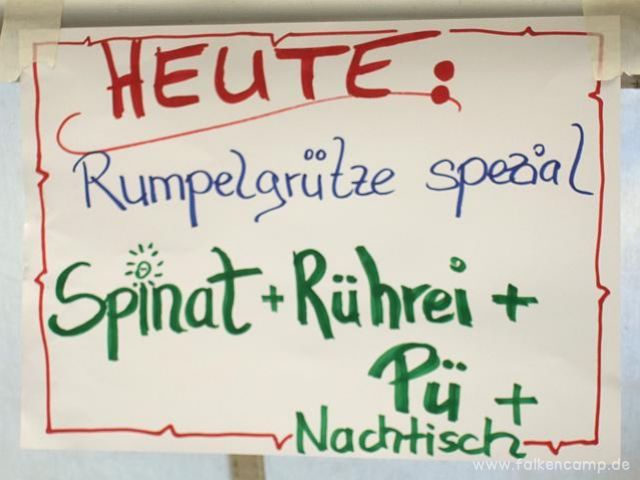 HEUTE:
Rumpelgrütze spezial
Spinat + Rührei +
Pü +
Nachtisch
www.falkencamp.de